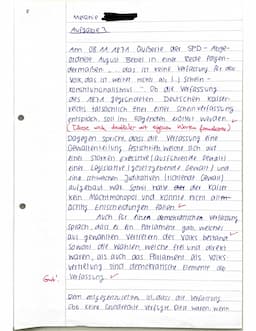 Aufgabe 1
Am 08.11.1871 äußerte der SPD-Abge-
ordnete August Bebel in einer Rede folgen-
dermaßen "... das ist keine Verfassung für das
Volk, das ist weiter nichts als (...) Schein-
konstitutionalismus". Ob die Verfassung
des 1871 gegründeten Deutschen Kaiser-
reichs tatsächlich einer Scheinverfassung
entsprach, soll im Folgenden erörtert werden.
Dagegen spricht, dass die Verfassung eine
Gewaltenteilung
einer starken Exekutive (ausführende Gewalt)
einer Legislative (gesetzgebende Gewalt) und
eine schwachen Judikative (richtende Gewalt)
aufgebaut war. Somit hatte der Kaiser
kein Machtmonopol und konnte nicht
Entscheidungen fällen.
Auch für einen demokratischen Verfassung
sprach, dass es ein Parlament gab, welches
aus gewählten Vertretern des Volkes bestand.
Sowohl die Wahlen, welche frei und direkt
waren, als auch das Parlament als Volks-
vertretung sind demokratische Elemente der
Gut!
Verfassung.
Dem entgegenzusetzen ist, dass die Verfassung